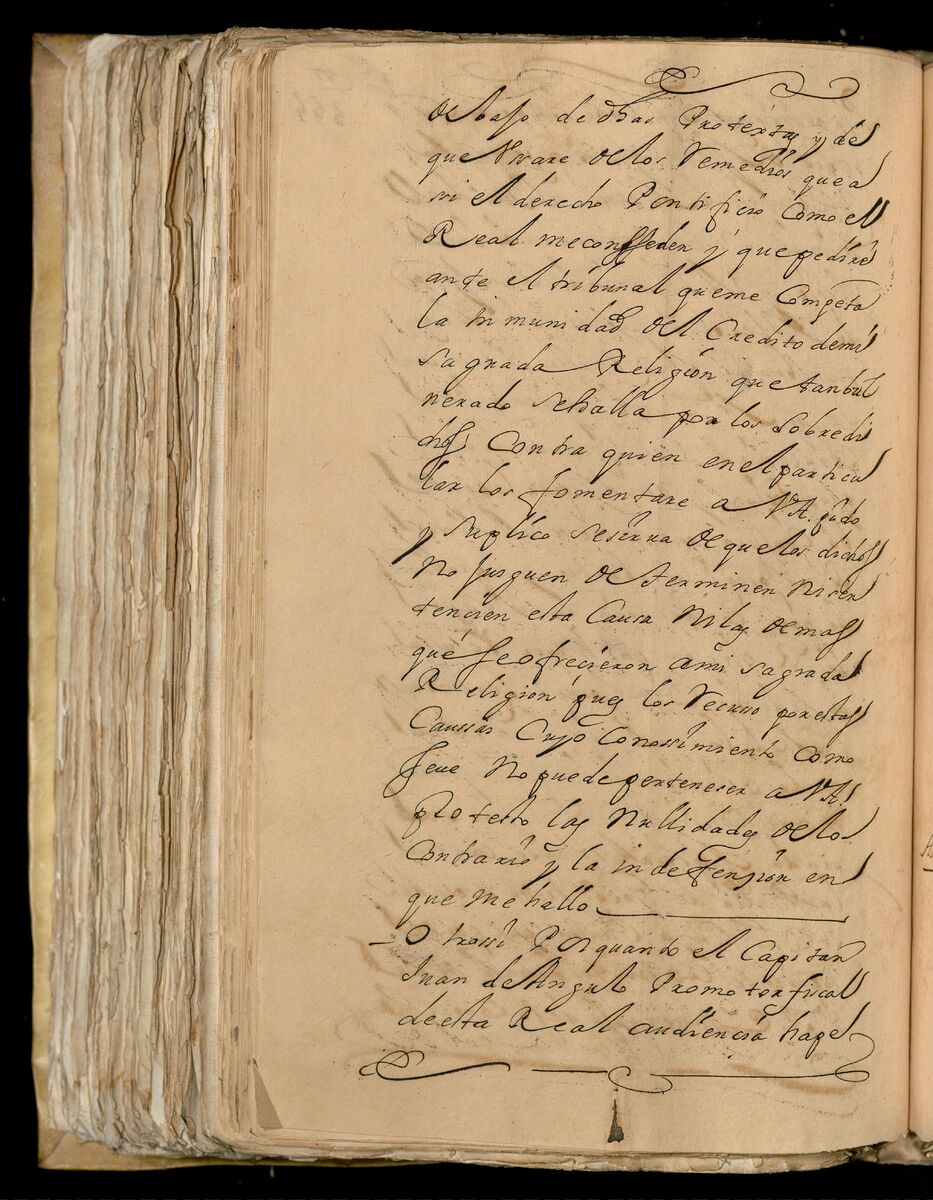 Debajo de dhas Protextas y de
que Vsare de los Remedios que a
si el derecho Pontificio Como el
Real meconsseden y que pedire
ante el tribunal queme Competa
la inmunidad del Credito demi
sagrada Religion que tanbul
nerado sehalla por los Sobredi
chos Contra quien enel particu
lar los fomentare a V.A. pido
y suplico seserua de quelos dichos
No jusguen determinen Nisen
tencien esta Causa Nilas demas
que seofrecieron ami sagrada
Religion pues los Recuso porestas
Caussas Cuyo Conossimiento Como
seue No puede perteneser a V.A.
protesto las Nullidades delo
Contrario y la indefension en
que me hallo
Otrossi Porquanto el Capitan
Juan de Angulo Promotorfiscal
deesta Real audiencia haze